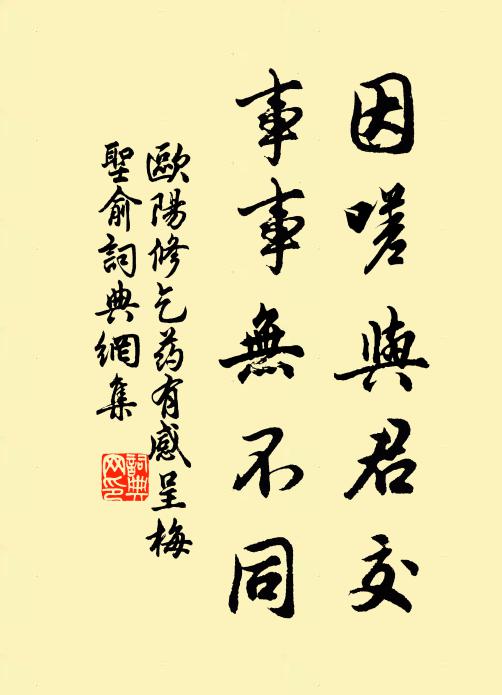 因嗟與君交
事事無不同
歐陽修乞药有感呈梅
聖俞詞典網集
詞典
网印